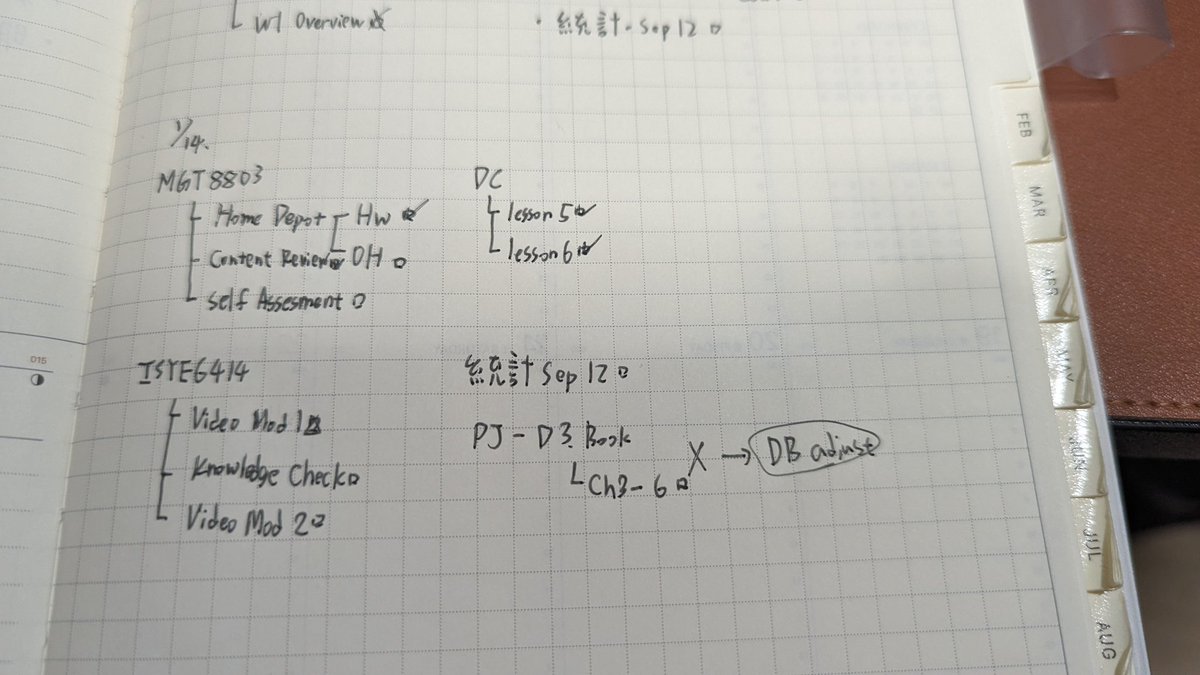 W1 Overview
・統計 - Sep 12
1/14.
MGT8803
Home Depot HW
Content Review OH
Self Assesment
DC
lesson 5
lesson 6
ISYE6414
Video Mod 1
Knowledge Check
Video Mod 2
統計 Sep 12
PJ - D3. Book
Ch3-6 X → DB adjust
015
FEB
MAR
APR
MAY
JUN
JUL
AUG